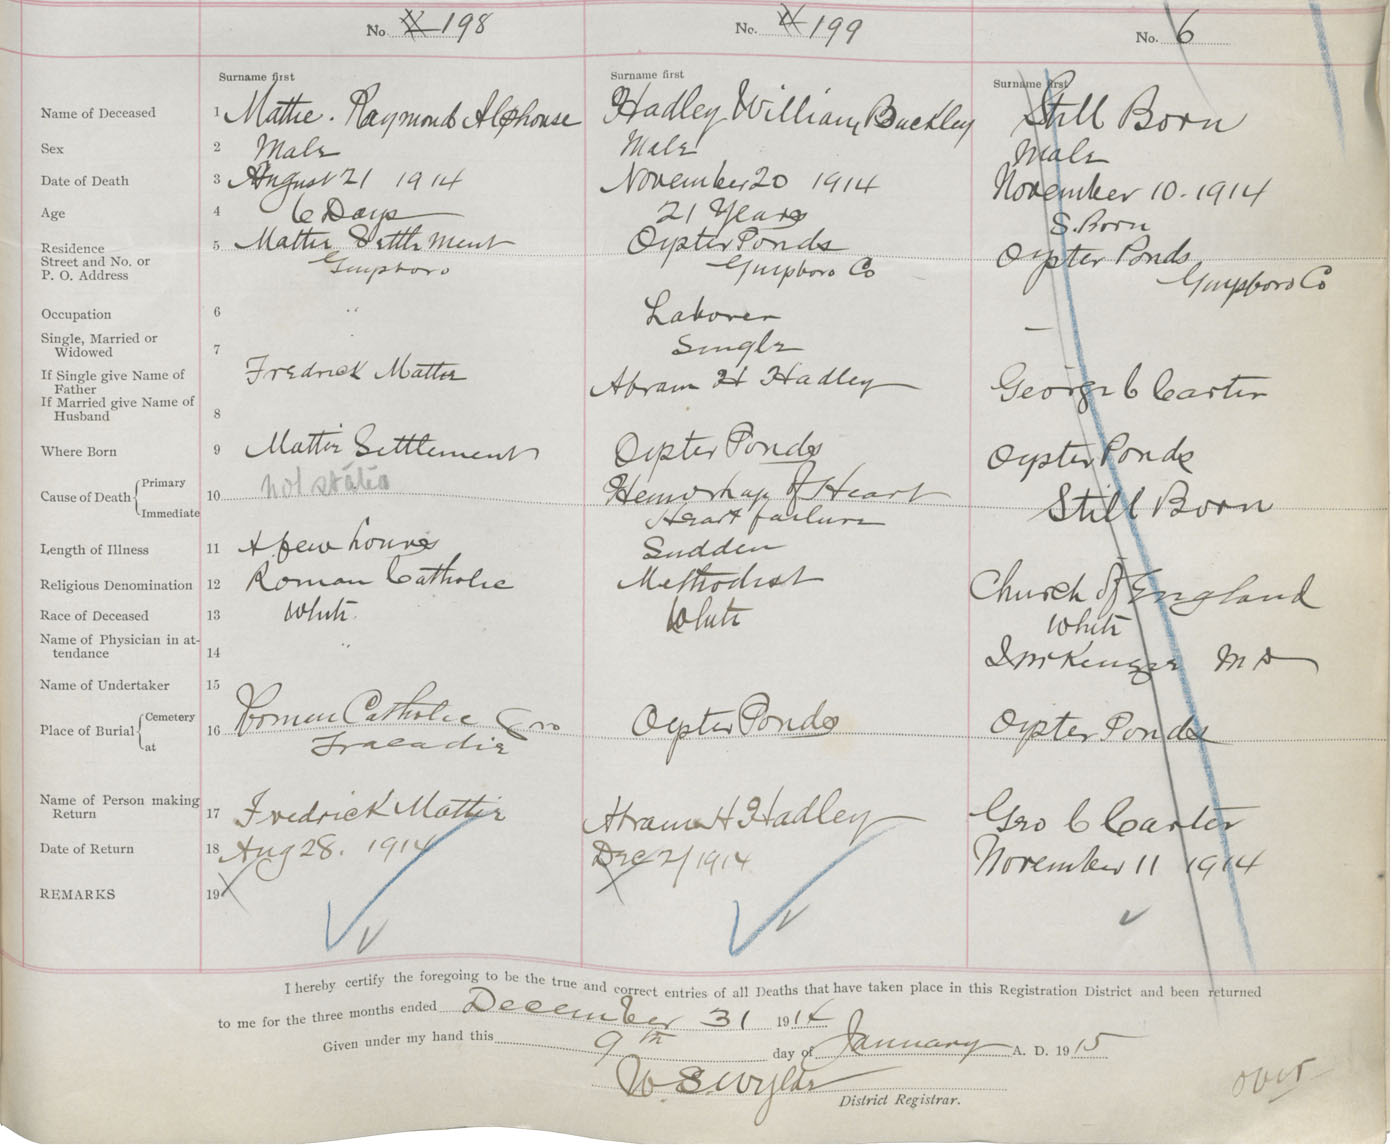 No. 198 No. 199 No. 6
Surname first Surname first Surname first
Name of Deceased 1 Mattie. Raymond Alphonse Hadley William Buckley Still Born
Sex 2 Male Male Male
Date of Death 3 August 21 1914 November 20 1914 November 10. 1914
Age 4 6 Days 21 Years S. Born
Residence 5 Mattie Settlement Oyster Ponds Oyster Ponds
Street and No. or
P. O. Address Guysboro Guysboro Co Guysboro Co
Occupation 6 " Laborer —
Single, Married or
Widowed 7 Single
If Single give Name of
Father Fredrick Mattie Abram H Hadley George C Carter
If Married give Name of
Husband 8
Where Born 9 Mattie Settlement Oyster Ponds Oyster Ponds
Cause of Death { Primary
Immediate 10 not stated Hemorhage of Heart Still Born
Heart failure
Length of Illness 11 A few hours Sudden
Religious Denomination 12 Roman Catholic Methodist Church of England
Race of Deceased 13 White White White
Name of Physician in at-
tendance 14 " McKenzie M D
Name of Undertaker 15
Place of Burial { Cemetery
at 16 Roman Catholic Oyster Ponds Oyster Ponds
Tracadie
Name of Person making
Return 17 Fredrick Mattie Abram H Hadley Geo C Carter
Date of Return 18 Aug 28. 1914 Dec 21 1914 November 11 1914
REMARKS 19
I hereby certify the foregoing to be the true and correct entries of all Deaths that have taken place in this Registration District and been returned
to me for the three months ended December 31 1914
Given under my hand this 9th day of January A. D. 1915
W. S. Wylde
District Registrar.
over